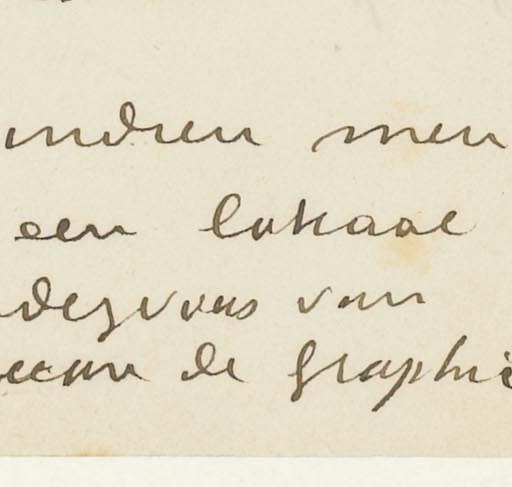 indien men
een lokaal
dezvous van
de graphi